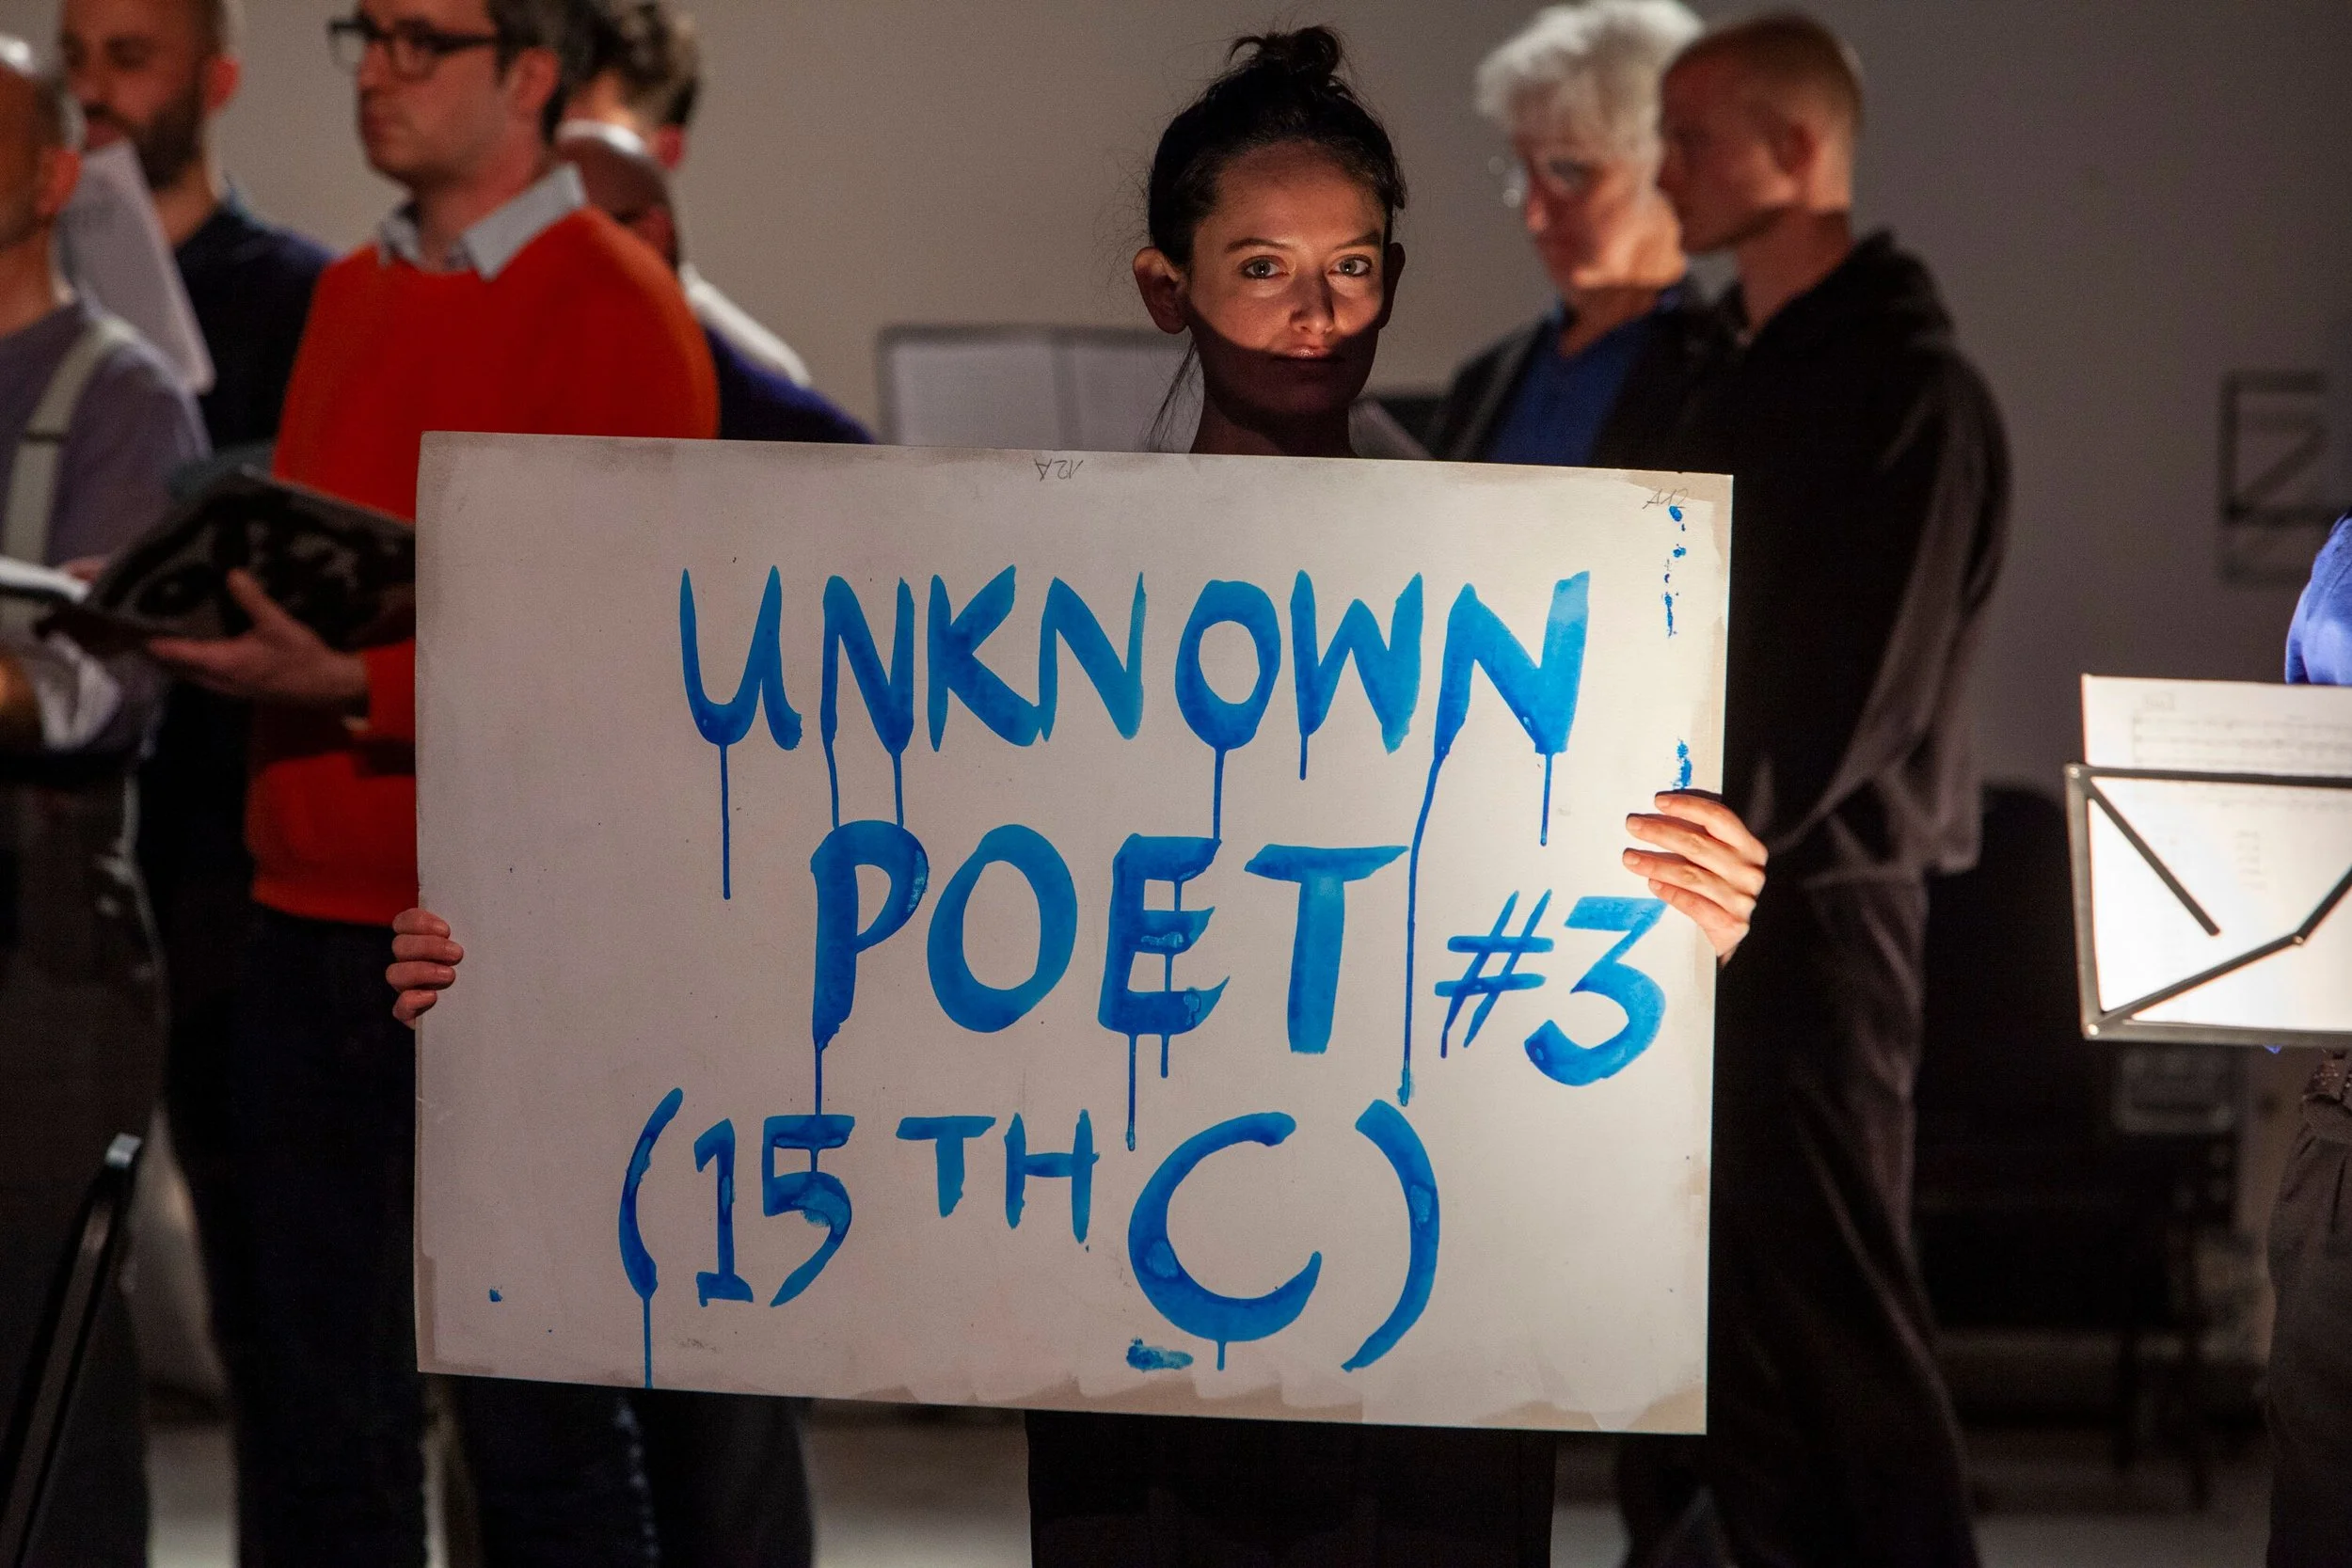 12A
A12
UNKNOWN
POET #3
(15TH C)